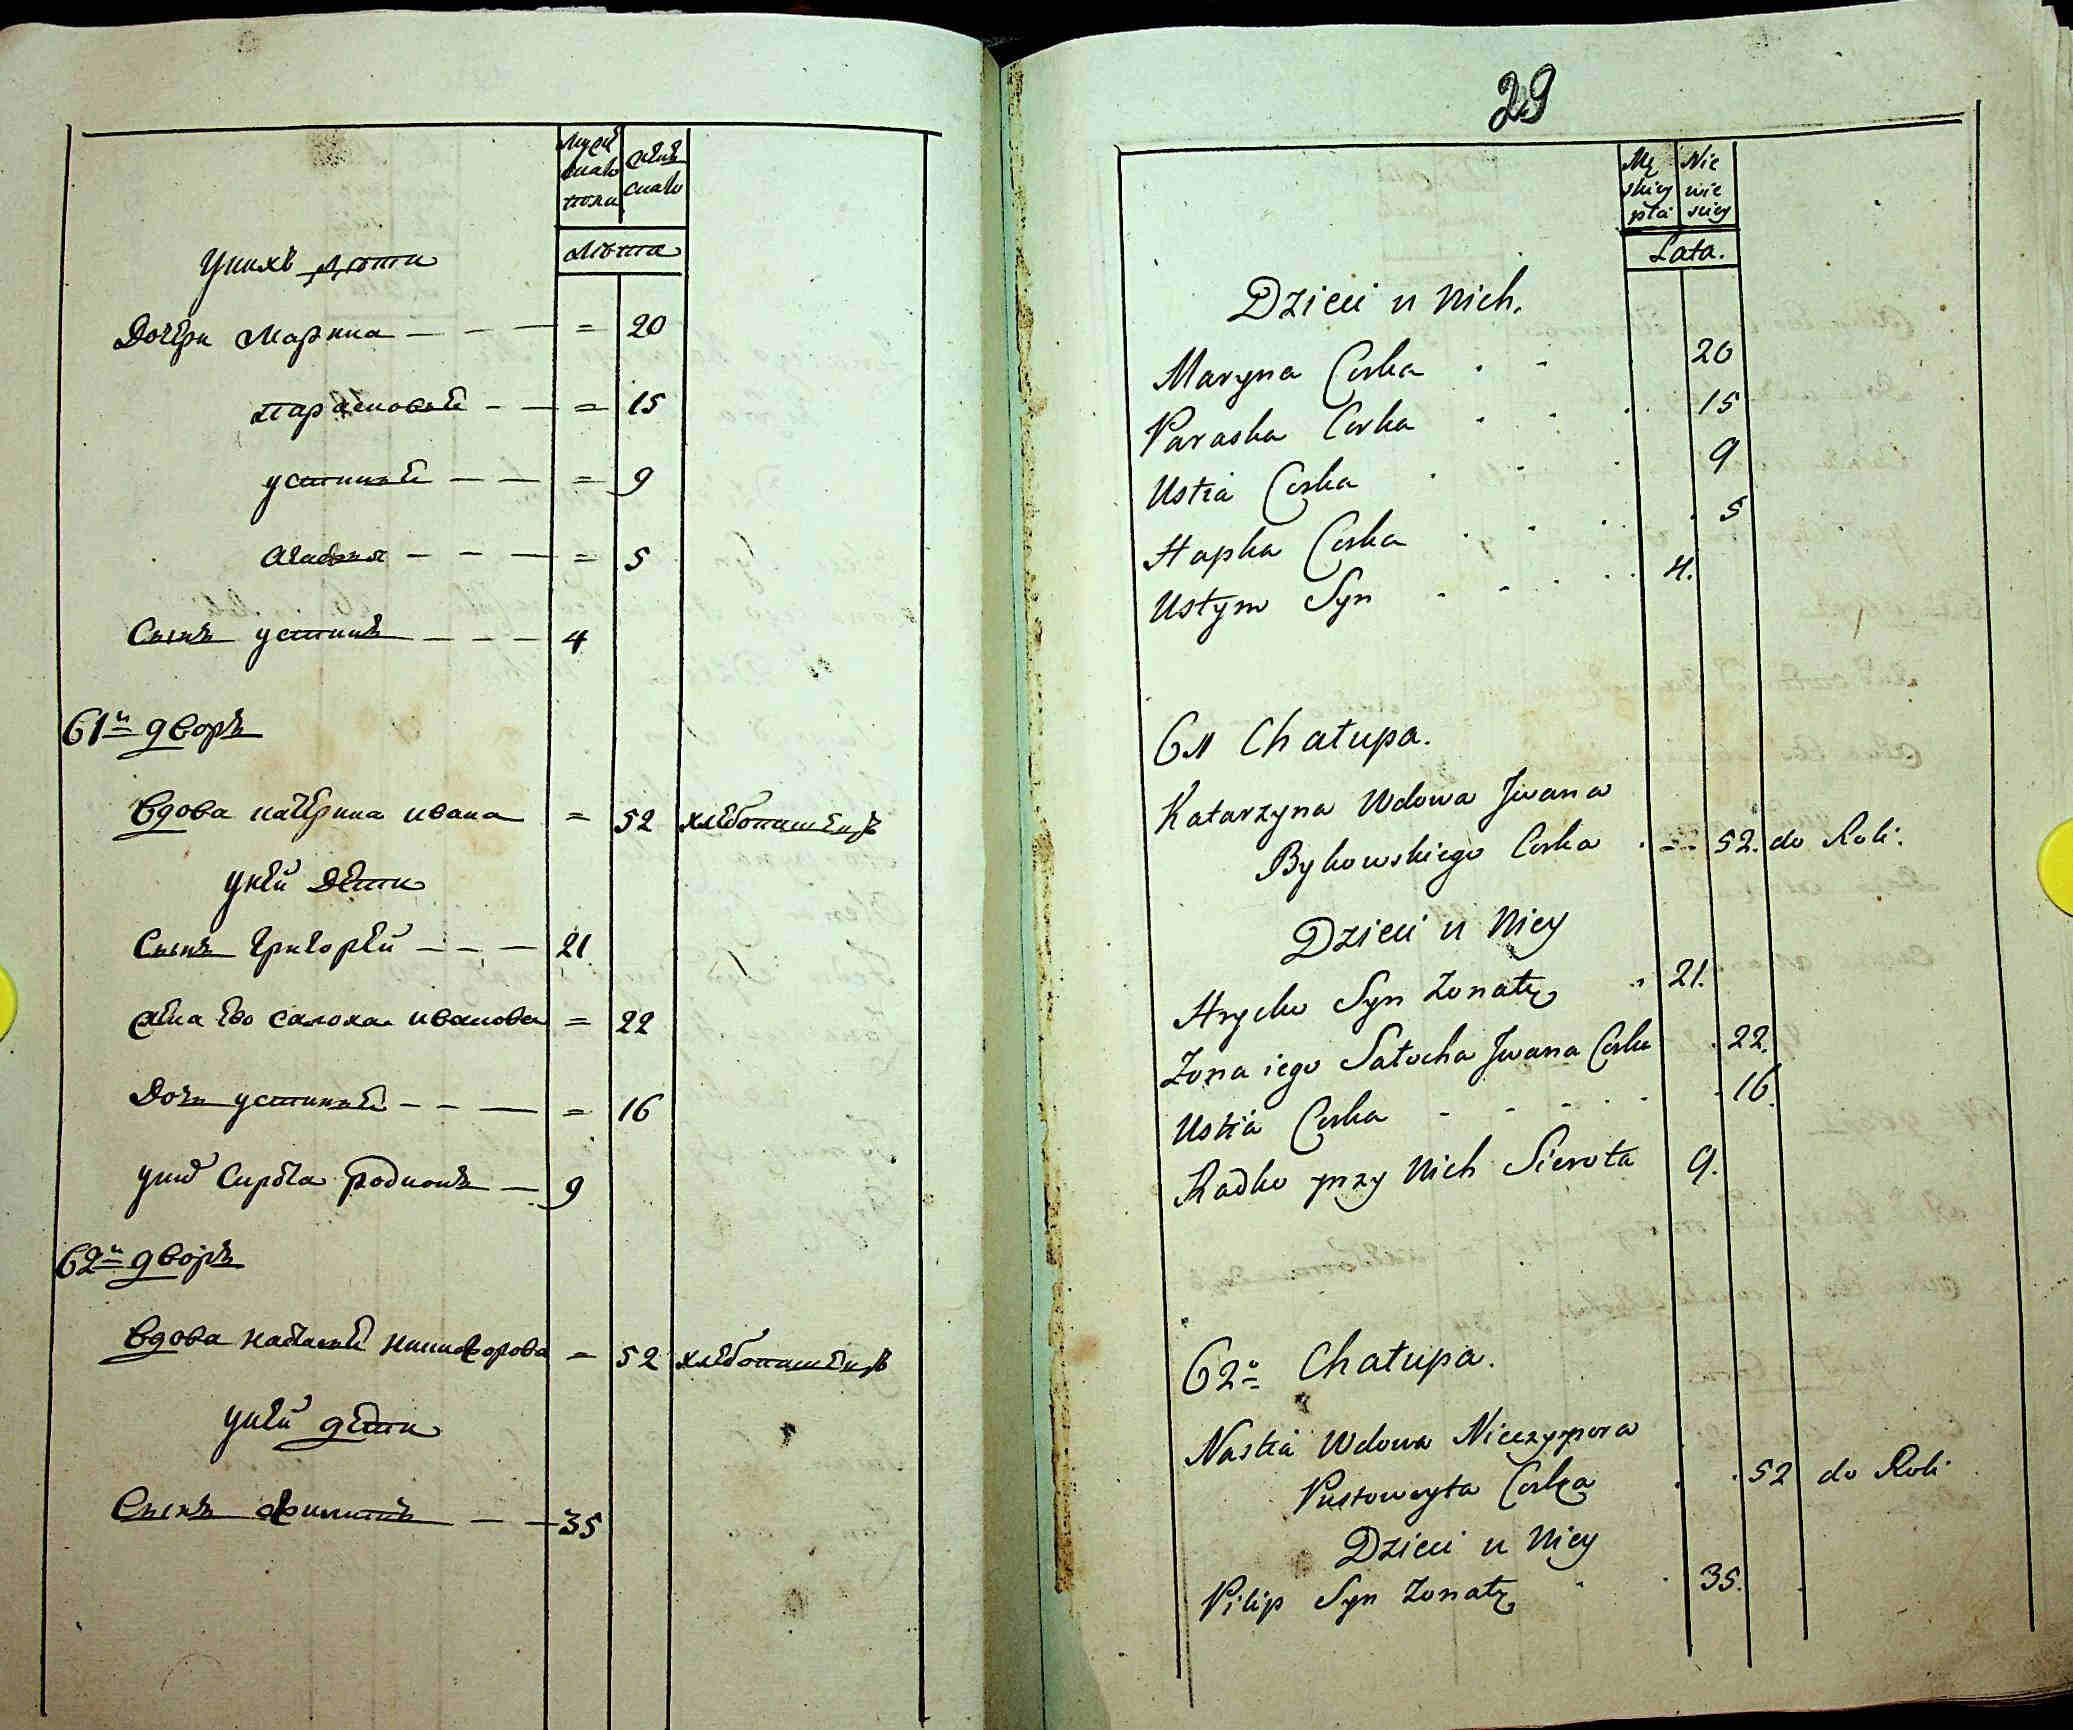 мужескаго пола
женскаго
Лѣта
у нихъ дѣти
дочери Марина — — — = 20
парасковея — — = 15
устинея — — = 9
агафия — — — = 5
Сынъ устинъ — — — 4
61й дворъ
вдова катерина ивана = 52 хлебопашецъ
у ней дети
Сынъ григорей — — — 21
жена ево салоха иванова = 22
дочь устинея — — — = 16
у них сирота родионъ — 9
62й дворъ
вдова настасея никифорова = 52 хлебопашецъ
у ней дети
Сынъ филипъ — — 35
29
Mę skiey płci
Nie wie sciey
Lata.
Dzieci u Nich.
Maryna Corka 20
Paraska Corka 15
Ustia Corka 9
Hapka Corka 5
Ustym Syn 4.
61 Chałupa.
Katarzyna Wdowa Jwana
Bykowskiego Corka 52. do Roli.
Dzieci u Niey
Hrycko Syn żonaty 21.
Żona iego Sałocha Jwana Corka 22.
Ustia Corka 16.
Radko przy Nich Sierota 9.
62a Chałupa.
Nastia Wdowa Niczypora
Pustowoyta Corka 52 do Roli
Dzieci u Niey
Pilip Syn żonaty 35.